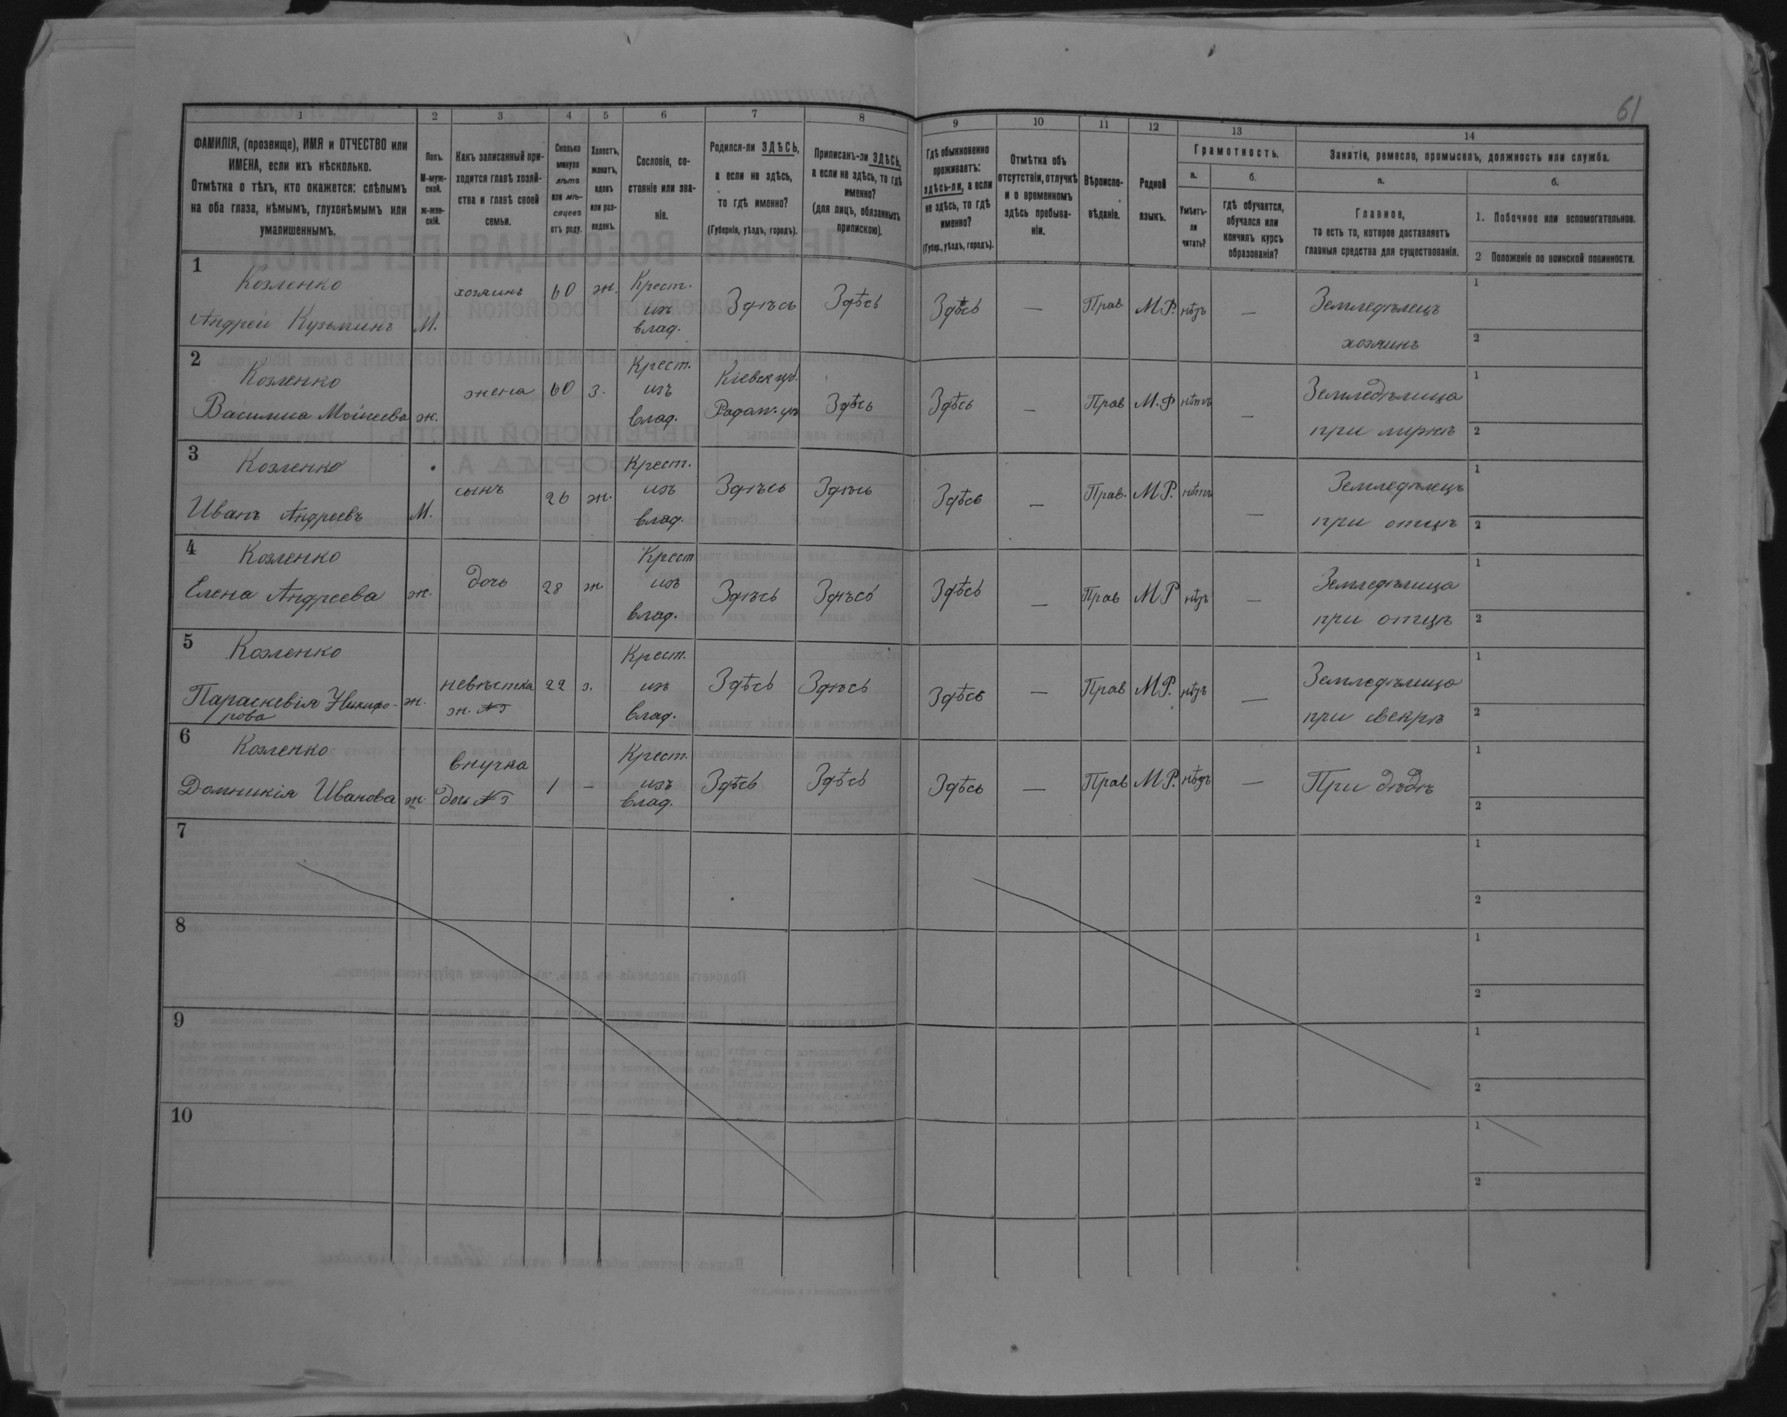 61
1 2 3 4 5 6 7 8 9 10 11 12 13 14
ФАМИЛІЯ, (прозвище), ИМЯ и ОТЧЕСТВО или
ИМЕНА, если ихъ нѣсколько.
Отмѣтка о тѣхъ, кто окажется: слѣпымъ
на оба глаза, нѣмымъ, глухонѣмымъ или
умалишеннымъ.
Полъ.
М-муж-
ской.
Ж-жен-
скій.
Какъ записанный при-
ходится главѣ хозяй-
ства и главѣ своей
семьи.
Сколько
минуло
лѣтъ
или мѣ-
сяцевъ
отъ роду.
Холостъ,
женатъ,
вдовъ
или раз-
веденъ.
Сословіе, со-
стояніе или зва-
ніе.
Родился-ли ЗДѢСЬ,
а если не здѣсь,
то гдѣ именно?
(Губернія, уѣздъ, городъ).
Приписанъ-ли ЗДѢСЬ,
а если не здѣсь, то гдѣ
именно?
(для лицъ, обязанныхъ
припискою).
Гдѣ обыкновенно
проживаетъ:
здѣсь-ли, а если
не здѣсь, то гдѣ
именно?
(Губер., уѣздъ, городъ).
Отмѣтка объ
отсутствіи, отлучкѣ
и о временномъ
здѣсь пребыва-
ніи.
Вѣроиспо-
вѣданіе.
Родной
языкъ.
Грамотность.
а.
Умѣетъ-
ли
читать?
б.
Гдѣ обучается,
обучался или
кончилъ курсъ
образованія?
Занятіе, ремесло, промыселъ, должность или служба.
а.
Главное,
то есть то, которое доставляетъ
главныя средства для существованія.
б.
1. Побочное или вспомогательное.
2 Положеніе по воинской повинности.
1
Козленко
Андрей Кузьминъ М.
хозяинъ 60 ж. Крест.
изъ
влад.
Здѣсь Здѣсь Здѣсь — Прав М.Р. нѣтъ —
Земледѣлецъ
хозяинъ
1
2
2
Козленко
Василиса Моисеева ж.
жена 60 з. Крест.
изъ
влад.
Кіевск губ.
Здѣсь Здѣсь — Прав М.Р нѣтъ —
Земледѣлица
при мужѣ
1
2
3
Козленко
Иванъ Андреевъ М.
сынъ 26 ж. Крест.
изъ
влад.
Здѣсь Здѣсь Здѣсь — Прав. М.Р. нѣтъ —
Земледѣлецъ
при отцѣ
1
2
4
Козленко
Елена Андреева ж.
дочь 28 ж Крест
изъ
влад.
Здѣсь Здѣсь Здѣсь — Прав М Р нѣтъ —
Земледѣлица
при отцѣ
1
2
5
Козленко
Параскевія Никифо-
рова ж.
невѣстка
ж. №3
22 з. Крест.
изъ
влад.
Здѣсь Здѣсь Здѣсь — Прав М.Р. нѣтъ —
Земледѣлица
при свекрѣ
1
2
6
Козленко
Домникія Иванова ж.
внучка
дочь №3
1 — Крест.
изъ
влад.
Здѣсь Здѣсь Здѣсь — Прав М.Р. нѣтъ —
При дѣдѣ
1
2
7
1
2
8
1
2
9
1
2
10
1
2